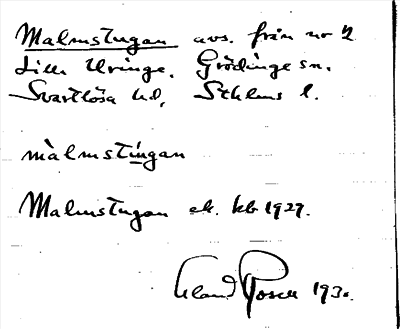 Malmstugan avs. från nr 2
Lilla Uringe. Grödinge sn.
Svartlösa hd, Sthlms l.
màlmstùgan
Malmstugan ek. kb 1927.
1930.